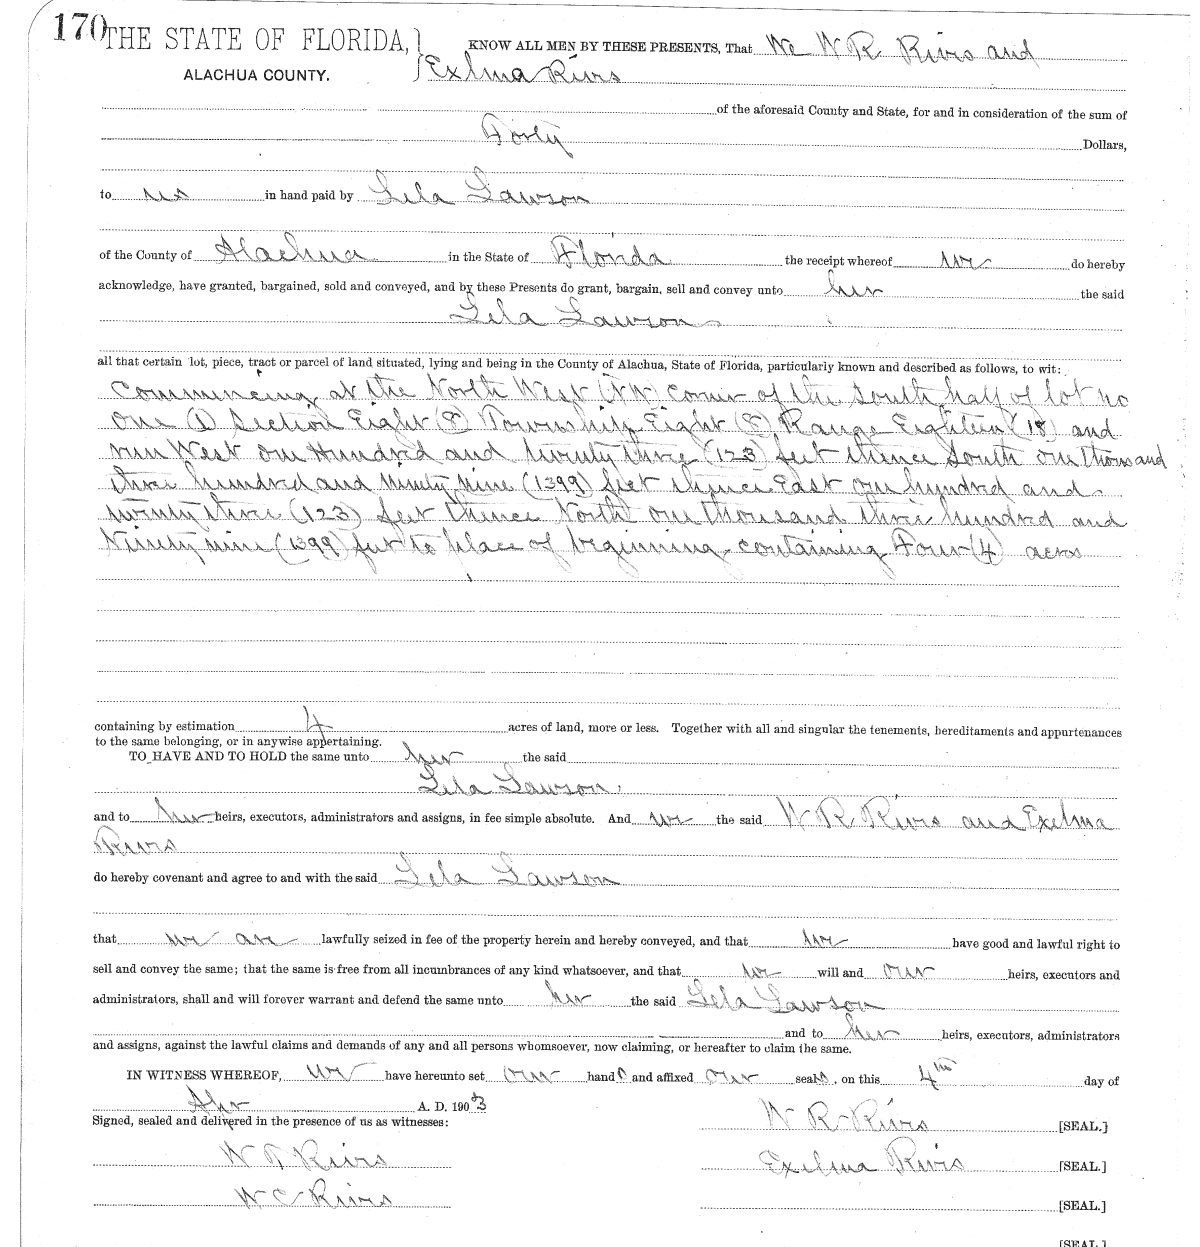 170 THE STATE OF FLORIDA,
KNOW ALL MEN BY THESE PRESENTS, That We W R. Rivrs and
ALACHUA COUNTY.
Exelma Rivrs
of the aforesaid County and State, for and in consideration of the sum of
Forty Dollars,
to us in hand paid by Lela Lawson
of the County of Alachua in the State of Florida the receipt whereof we do hereby
acknowledge, have granted, bargained, sold and conveyed, and by these Presents do grant, bargain, sell and convey unto her the said
Lela Lawson
all that certain lot, piece, tract or parcel of land situated, lying and being in the County of Alachua, State of Florida, particularly known and described as follows, to wit:
Commencing at the North West (NW) corner of the South half of lot no
One (1) Section Eight (8) Township Eight (8) Range Eighteen (18) and
run West one Hundred and twenty three (123) feet thence South one thousand
three hundred and Ninety nine (1399) feet thence East one hundred and
twenty three (123) feet thence North one thousand three hundred and
Ninety nine (1399) feet to place of beginning containing Four (4) acres
containing by estimation 4 acres of land, more or less. Together with all and singular the tenements, hereditaments and appurtenances
to the same belonging, or in anywise appertaining.
TO HAVE AND TO HOLD the same unto her the said
Lela Lawson
and to her heirs, executors, administrators and assigns, in fee simple absolute. And we the said W R Rivrs and Exelma
Rivrs
do hereby covenant and agree to and with the said Lela Lawson
that we are lawfully seized in fee of the property herein and hereby conveyed, and that we have good and lawful right to
sell and convey the same; that the same is free from all incumbrances of any kind whatsoever, and that we will and our heirs, executors and
administrators, shall and will forever warrant and defend the same unto her the said Lela Lawson
and to her heirs, executors, administrators
and assigns, against the lawful claims and demands of any and all persons whomsoever, now claiming, or hereafter to claim the same.
IN WITNESS WHEREOF, we have hereunto set our hands and affixed our seals, on this 4th day of
Apr A. D. 1903
Signed, sealed and delivered in the presence of us as witnesses:
W R Rivrs [SEAL.]
Rivrs Exelma Rivrs [SEAL.]
W C Rivrs [SEAL.]
[SEAL.]